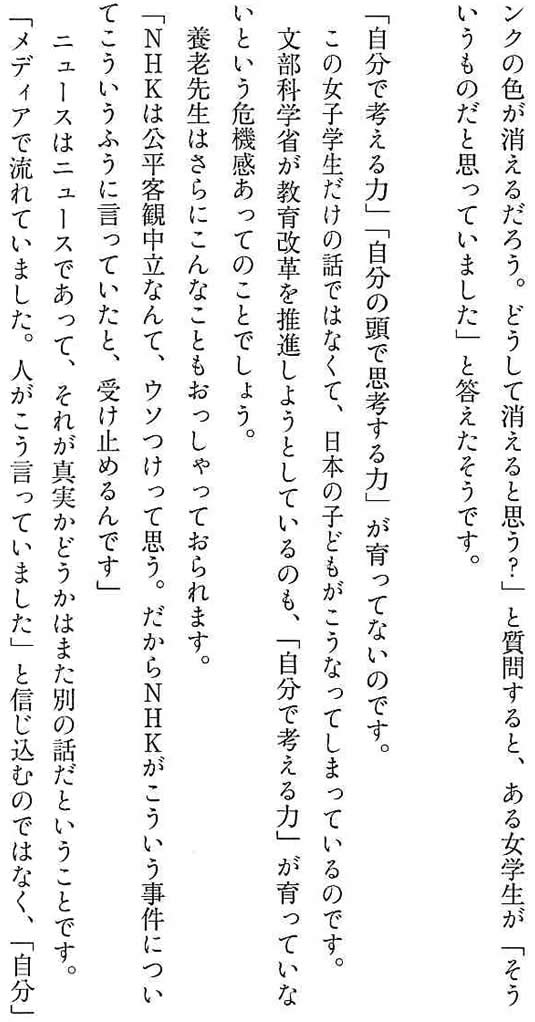 ンクの色が消えるだろう。どうして消えると思う？」と質問すると、ある女学生が「そう
いうものだと思っていました」と答えたそうです。
「自分で考える力」「自分の頭で思考する力」が育ってないのです。
この女子学生だけの話ではなくて、日本の子どもがこうなってしまっているのです。
文部科学省が教育改革を推進しようとしているのも、「自分で考える力」が育っていな
いという危機感あってのことでしょう。
養老先生はさらにこんなこともおっしゃっておられます。
「ＮＨＫは公平客観中立なんて、ウソつけって思う。だからＮＨＫがこういう事件につい
てこういうふうに言っていたと、受け止めるんです」
ニュースはニュースであって、それが真実かどうかはまた別の話だということです。
「メディアで流れていました。人がこう言っていました」と信じ込むのではなく、「自分」